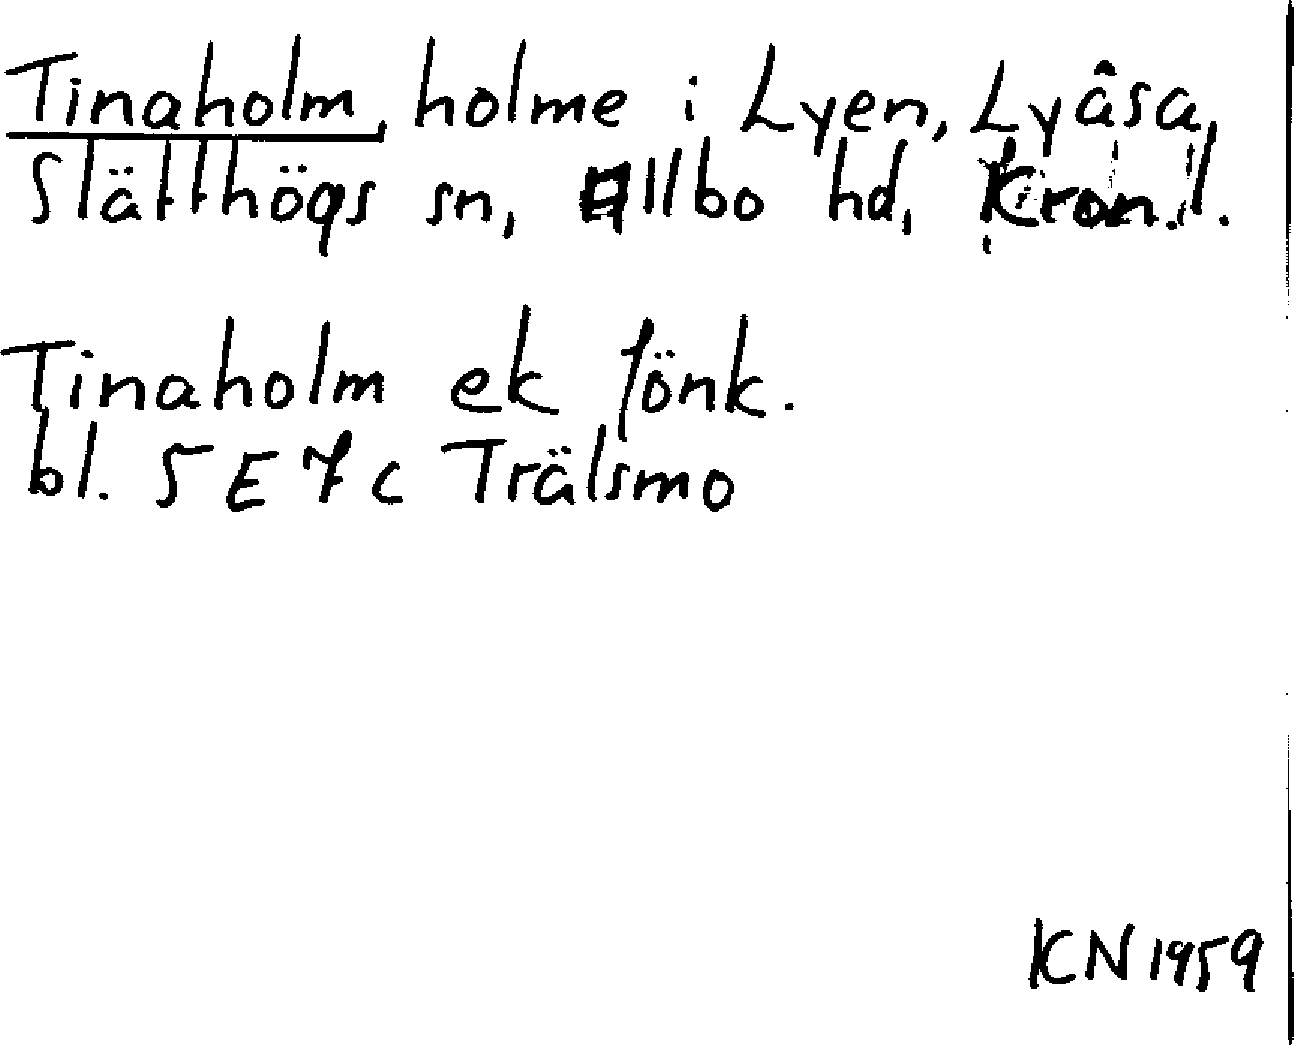 Tinaholm, holme i Lyen, Lyåsa,
Slätthögs sn, Allbo hd, Kron.l.
Tinaholm ek Jönk.
bl. 5 E 7 c Trälsmo
KN 1959